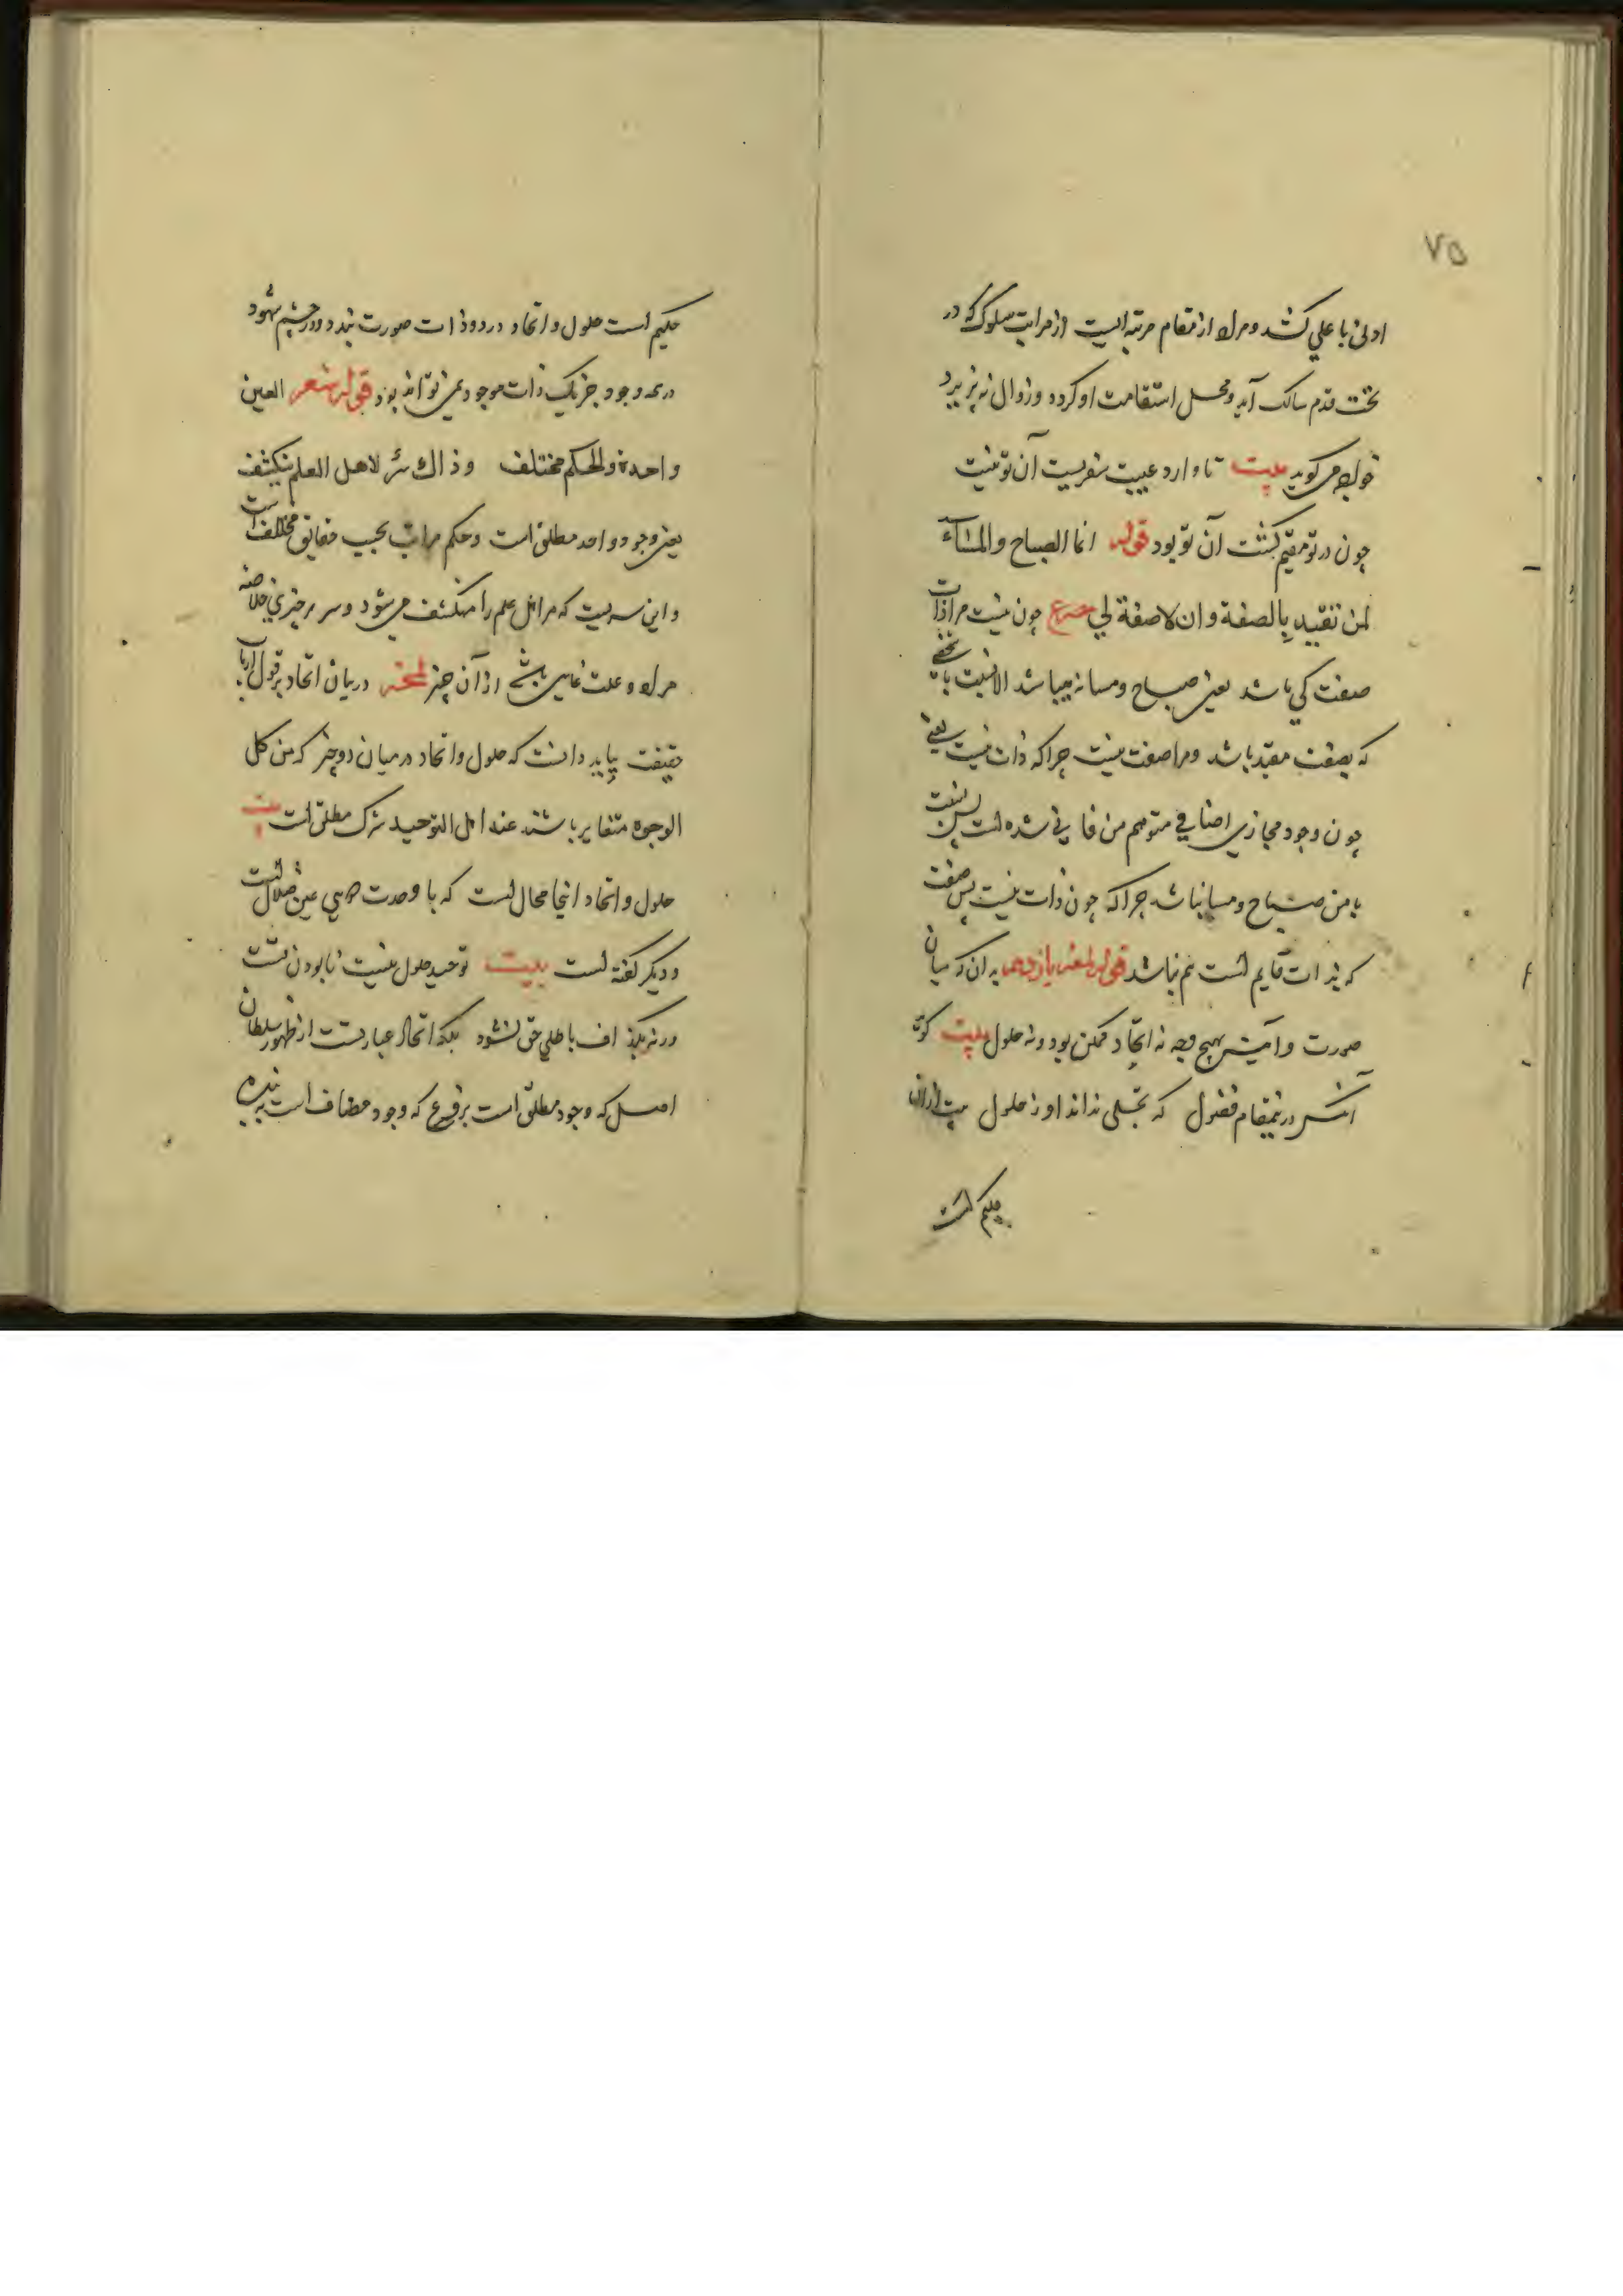 ۷۵
ادنی با علی کشد و مراد از مقام مرتبه ایست از مراتب سلوک که در
تحت قدم سالک آید و محل استقامت او کرده و زوال نپزیرد
قوله می کوید بیت تا وارد غیبت سفریست آن تو نیست
چون در تو مقیم کشت آن تو بود قوله انما الصباح والمساء
لمن تقید بالصفة وان لا صفة لی مصرع چون نیست مرا ذات
صفت کی باشد یعنی صباح و مسا نمیباشد الا نسبت با شخصی
که بصفت مقید باشد و مرا صفت نیست چرا که ذات نیست یعنی
چون وجود مجازی اضافی متوهم من فانی شده است پس نسبت
با من صباح و مسا نباشد چرا که چون ذات نیست پس صفت
که بذات قایم است هم نباشد قوله لمعه یازدهم بدان که میان
صورت و آینه بهیچ وجه نه اتحاد ممکن بود و نه حلول بیت کوید
آنکس درین مقام فضول که تجلی نداند او ز حلول
حکیم است
حکیم است حلول و اتحاد در دو ذات صورت نبندد و در چشم شهود
در همه وجود جز یک ذات موجود نمی تواند بود قوله شعر العین
واحدة والحکم مختلف وذاک سر لاهل العلم ینکشف
یعنی وجود واحد مطلق است و حکم مراتب بحسب حقایق مختلف است
و این سریست که مر اهل علم را منکشف می شود و سر هر چیزی خلاصه
مراد و علت غایی باشد از آن چیز لمحه در بیان اتحاد بر قول ارباب
حقیقت بباید دانست که حلول و اتحاد در میان دو چیز که من کل
الوجوه متغایر باشند عند اهل التوحید شرک مطلق است بیت
حلول و اتحاد اینجا محالست که با وحدت دویی عین ضلال است
و دیکر کفته است بیت توحید حلول نیست نابودن تست
ورنه بکزاف باطلی حق نشود بلکه اتحاد عبارتست از ظهور سلطان
اصل که وجود مطلق است بر فرع که وجود مضاف است به بنده